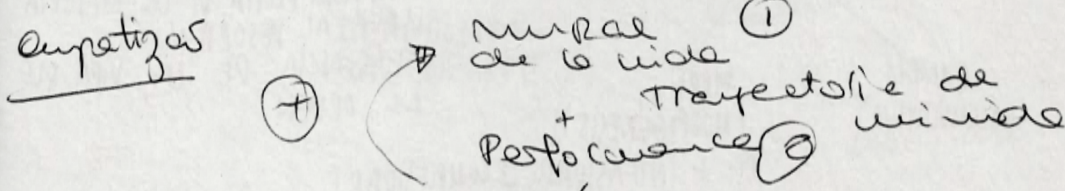 empatizar
+
MURAL ①
de la vida
trayectoria de
mi vida
+
Performance ②